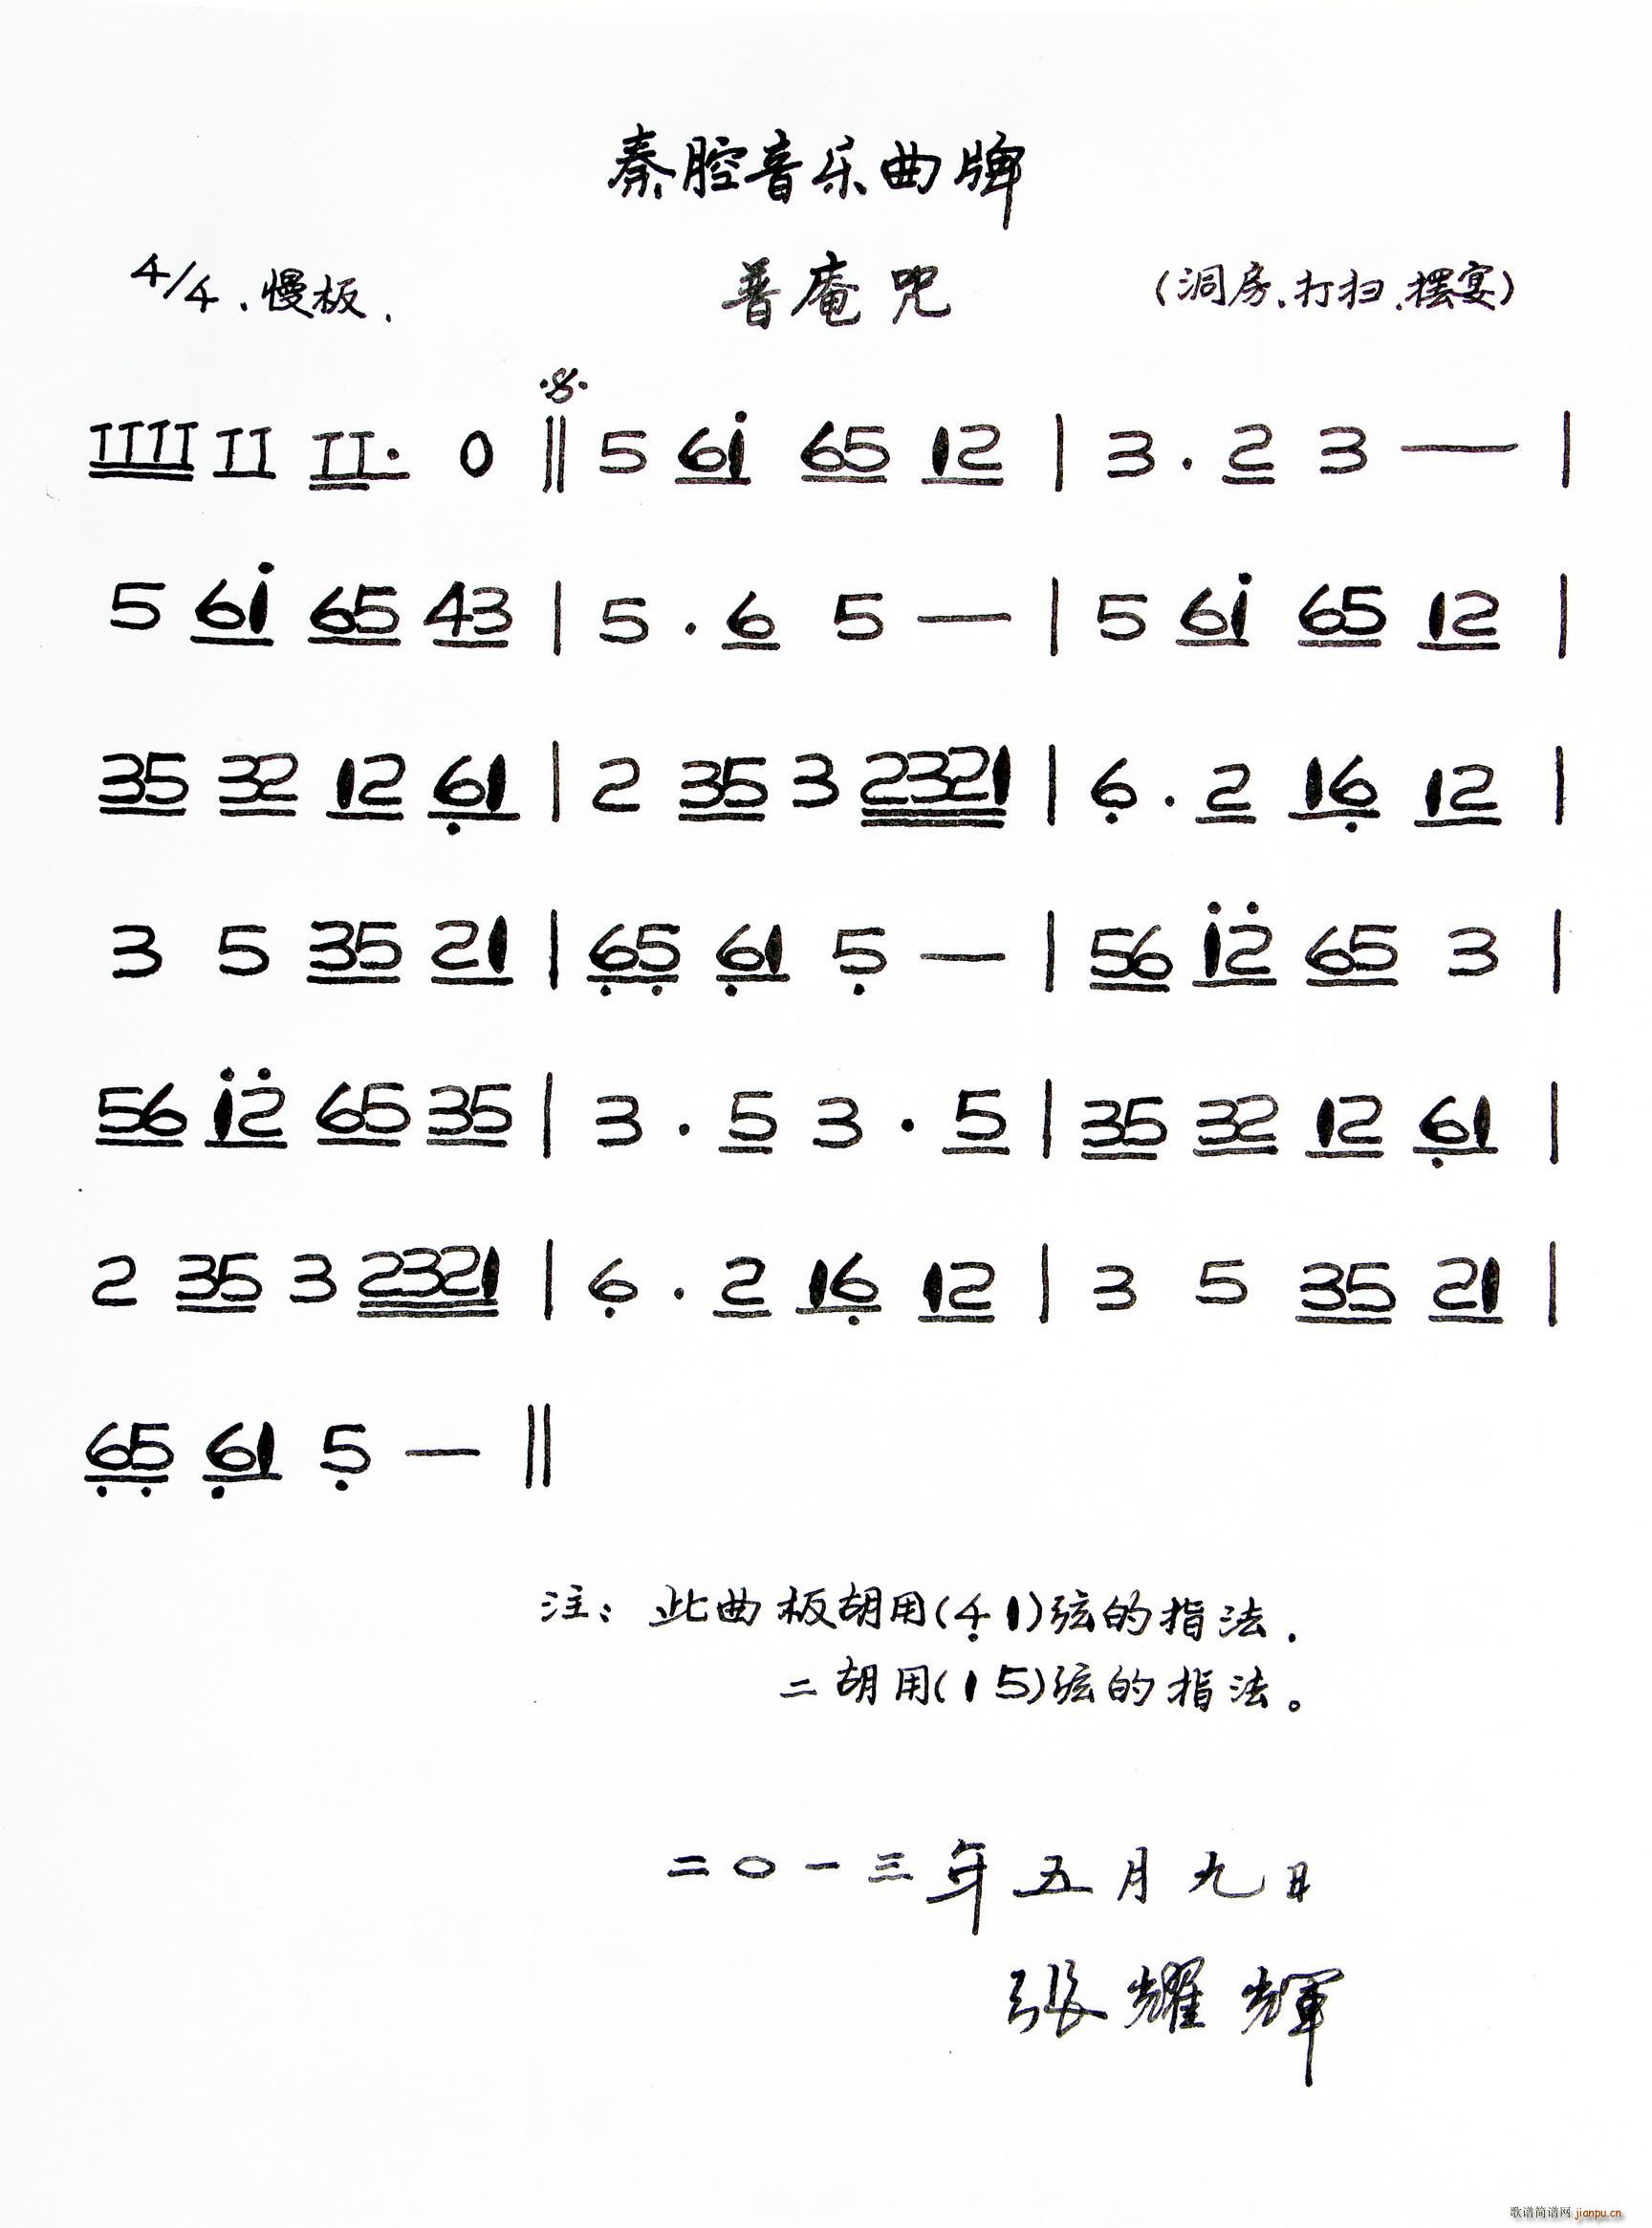 秦腔音乐曲牌
4/4、慢板.
普庵咒
(洞房、打扫、摆宴)
TTTT TT TT· 0 ‖ 5 6i̇ 65 12 | 3 · 2 3 — |
5 6i̇ 65 43 | 5 · 6 5 — | 5 6i̇ 65 12 |
35 32 12 6̣1 | 2 35 3 2321 | 6̣ · 2 16̣ 12 |
3 5 35 21 | 6̣5̣ 6̣1 5̣ — | 56 i̇2̇ 65 3 |
56 i̇2̇ 65 35 | 3 · 5 3 · 5 | 35 32 12 6̣1 |
2 35 3 2321 | 6̣ · 2 16̣ 12 | 3 5 35 21 |
6̣5̣ 6̣1 5̣ — ‖
注: 此曲板胡用(4̣ 1)弦的指法.
二胡用(1 5)弦的指法。
二〇一三年五月九日
張耀輝
歌谱简谱网 jianpu.cn